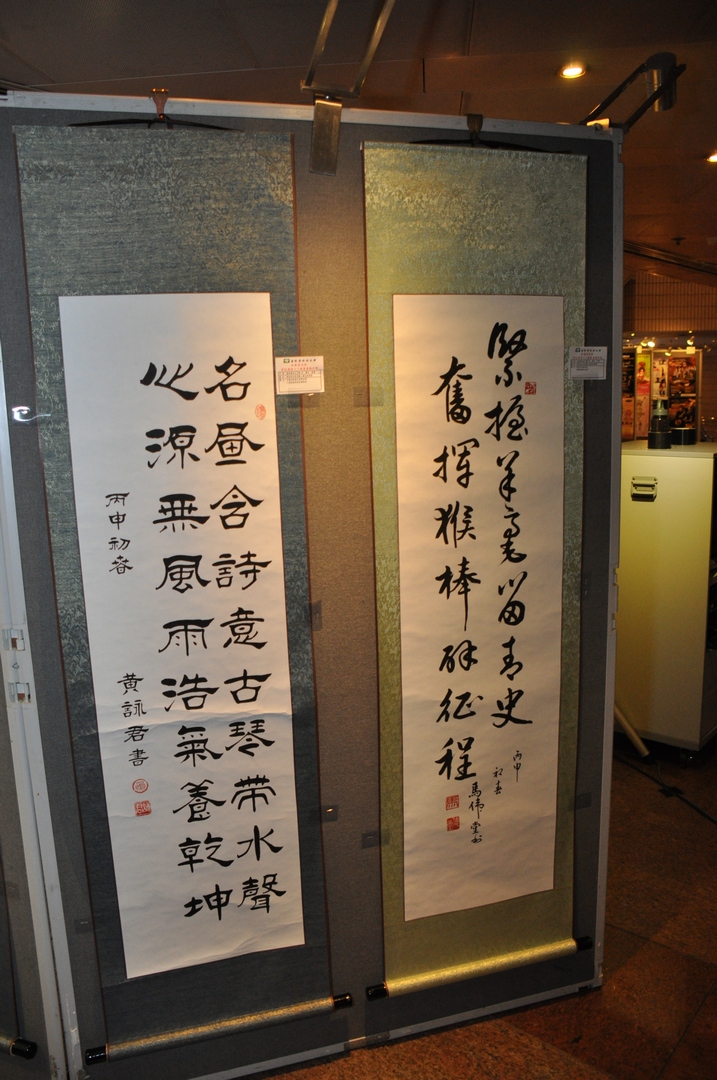 名昼含詩意古琴帶水聲
心源無風雨浩氣養乾坤
丙申初春
黃詠君書
緊握羊毫留青史
奮揮猴棒辟征程
丙申
初春
馬偉堂書